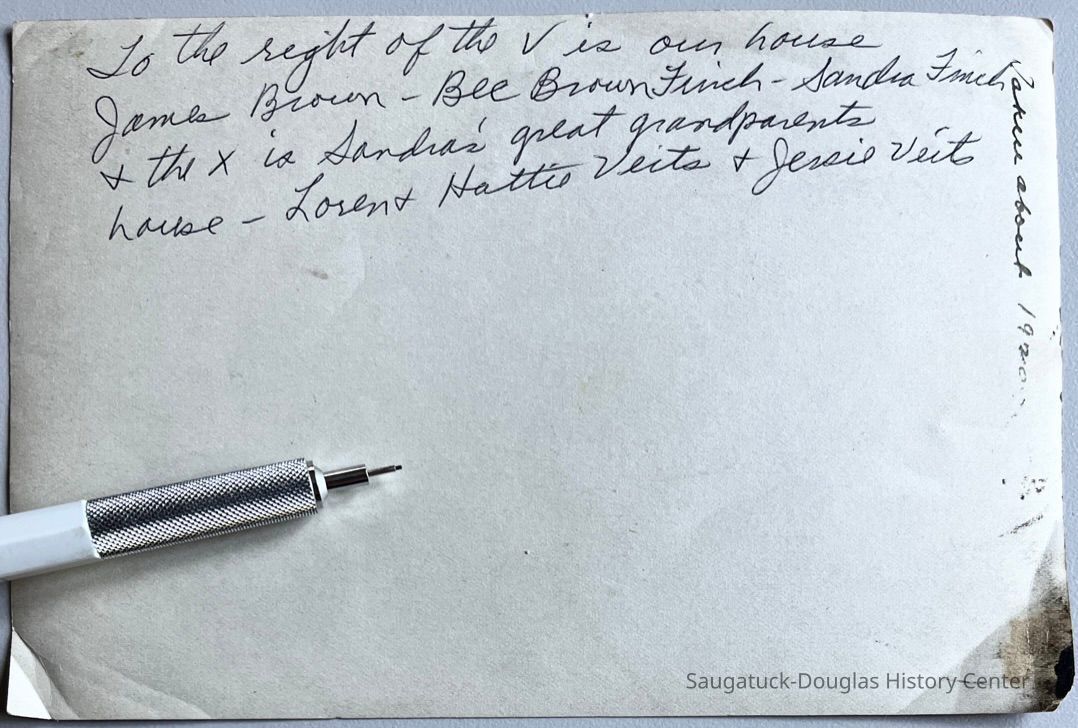 To the right of the V is our house
James Brown - Bee Brown Finch - Sandra Finch
& the X is Sandra's great grandparents
house - Loren & Hattie Veits & Jessie Veits
Taken about 1920
Saugatuck-Douglas History Center